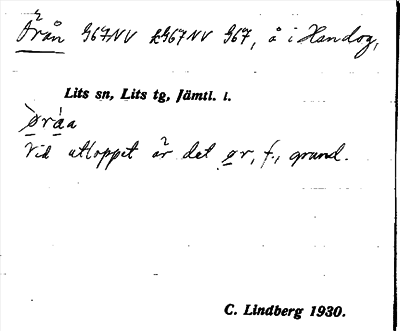 Öråån G67NV £G67NV G67, å i Handog,
Lits sn, Lits tg, Jämtl. l.
øråa
Vid utloppet är det ør, f., grund.
C. Lindberg 1930.